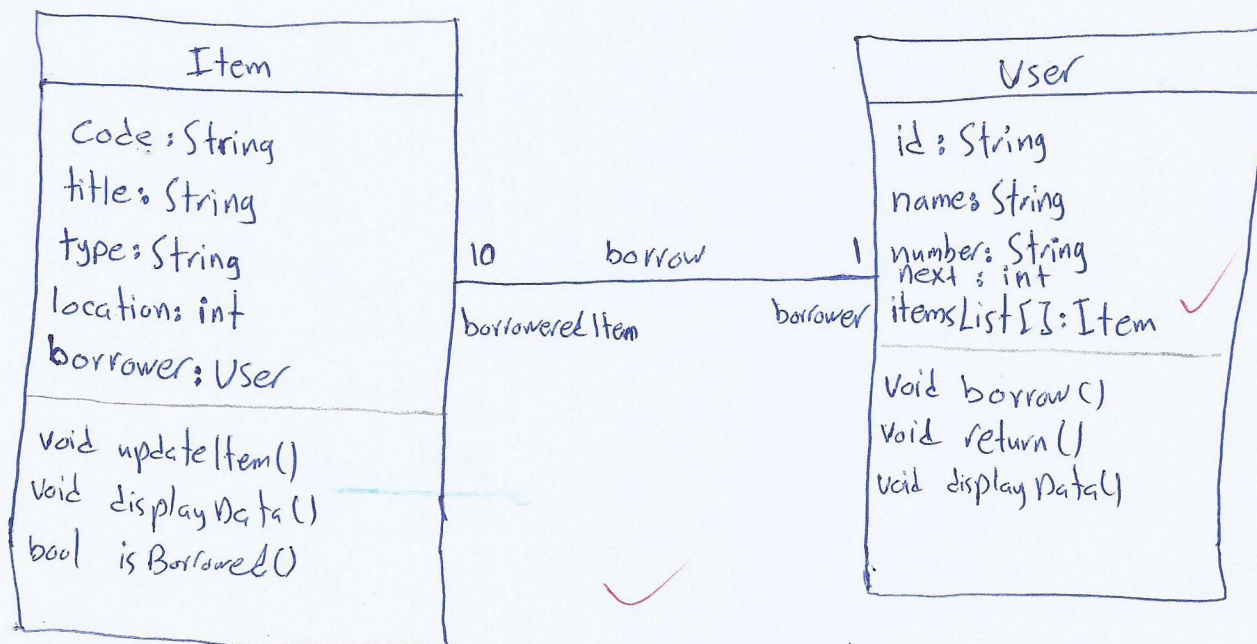 Item
Code: String
title: String
type: String
location: int
borrower: User
void updateItem()
void displayData()
bool isBorrowed()
10 borrow 1
borroweredItem borrower
User
id: String
name: String
number: String
next: int
itemsList[]: Item
void borrow()
void return()
void displayData()